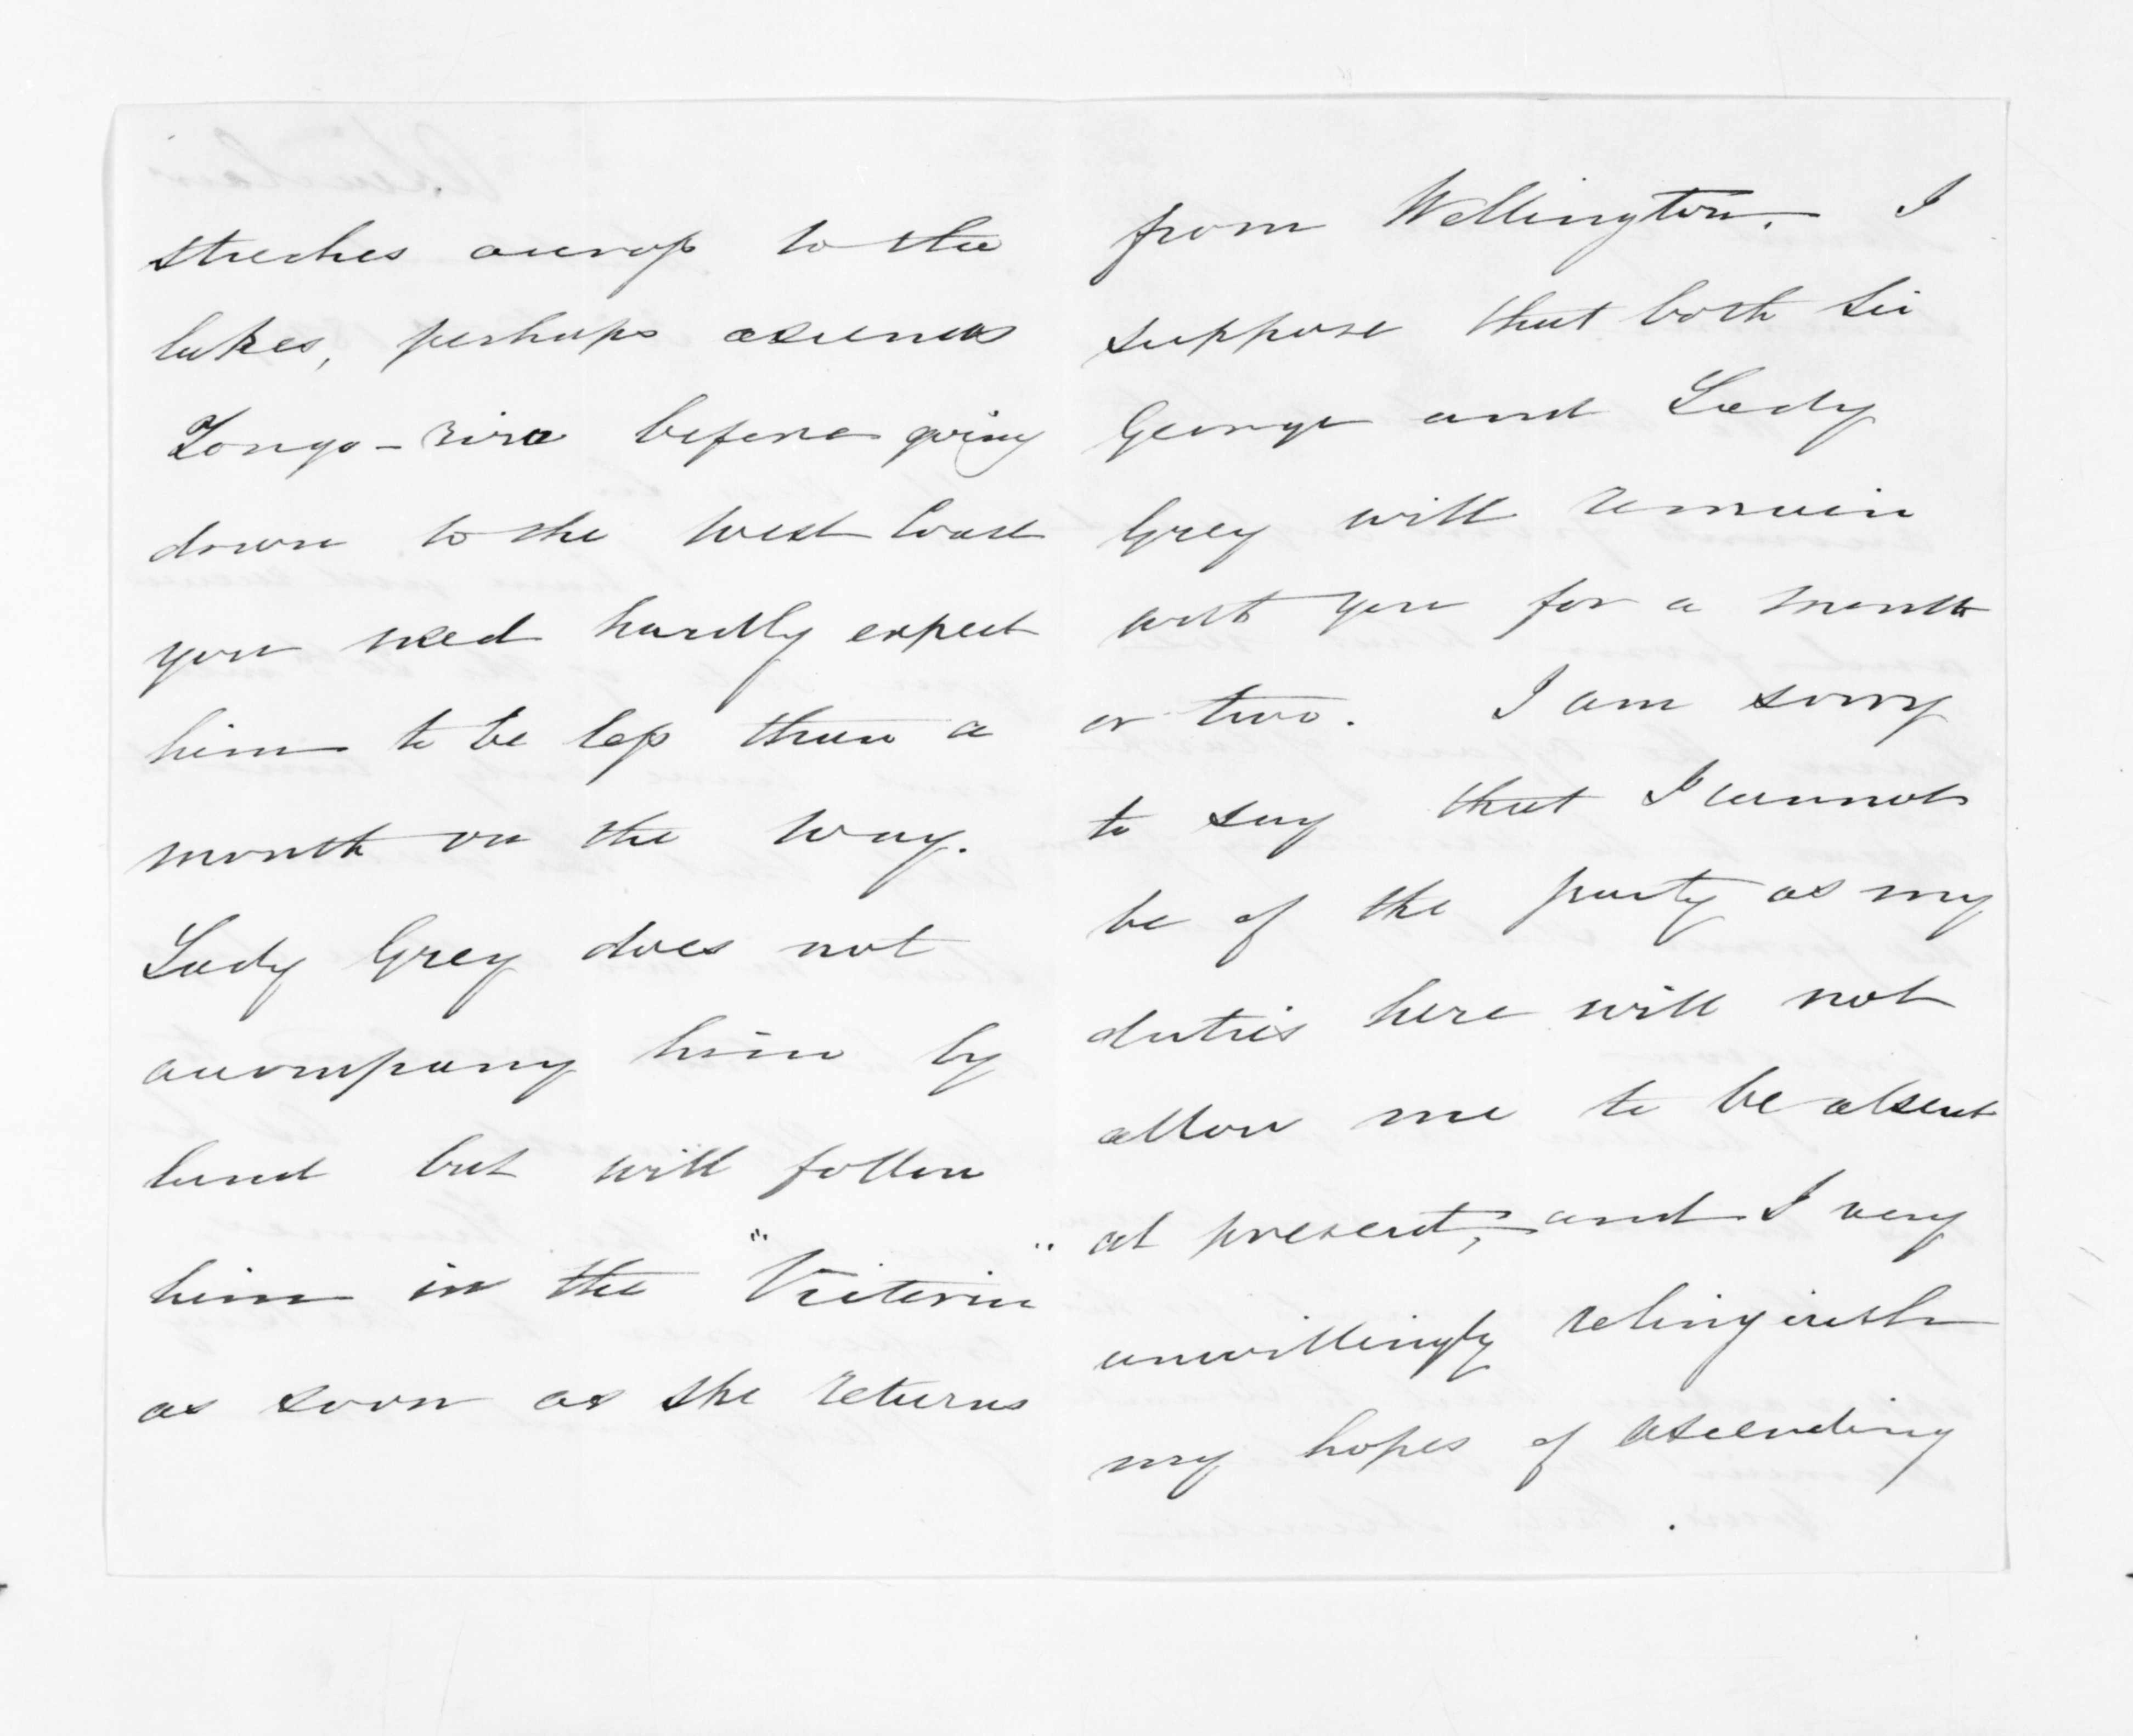 streches across to the
lakes, perhaps ascends
Tonga-riro before going
down to the West Coast
you need hardly expect
him to be less than a
month on the way.
Lady Grey does not
accompany him by
land but will follow
him in the "Victoria"
as soon as she returns
from Wellington. I
suppose that both Sir
George and Lady
Grey will remain
with you for a month
or two. I am sorry
to say that I cannot
be of the party as my
duties here will not
allow me to be absent
at present; and I very
unwillingly relinquish
my hopes of ascending